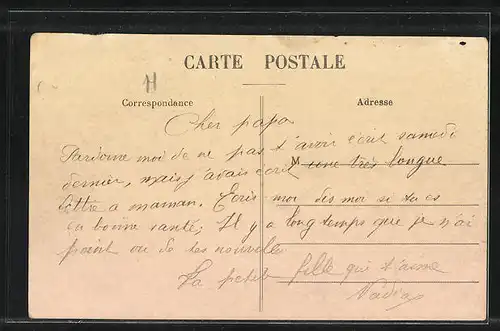 H
CARTE POSTALE
Correspondance
Adresse
Cher papa
Pardonne moi de ne pas t'avoir écrit samedi
dernier, mais j'avais écrit M une très longue
lettre a maman. Ecris moi des moi si tu es
en bonne santé; Il y a longtemps que je n'ai
point ou de tes nouvelle
La petite fille qui t'aime
Nadia